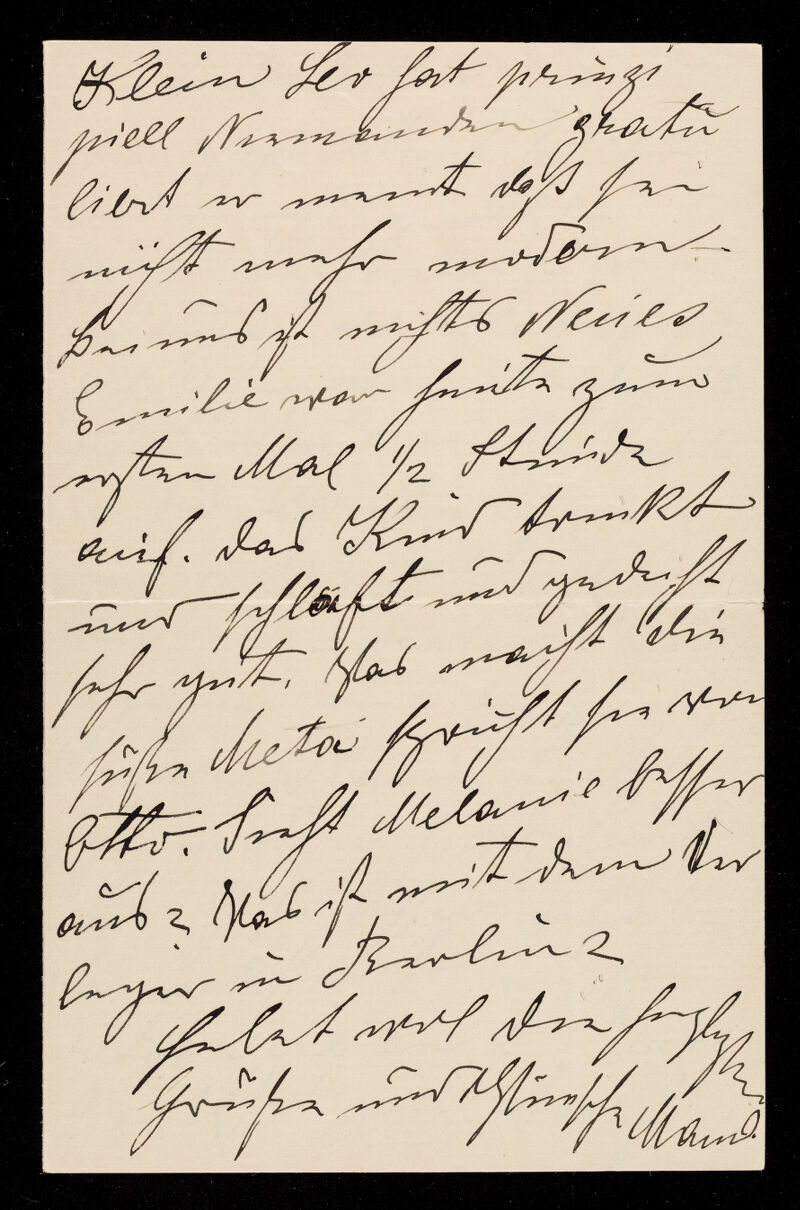 Klein Leo hat prinzi
piell Niemanden gratu
liert er meint das sei
nicht mehr modern –
bei uns ist nichts Neues
Emilie war heute zum
ersten Mal 1/2 Stunde
auf. das Kind trinkt
und schläft und gedeiht
sehr gut. Was macht die
süße Meta spricht sie von
Otto. Sieht Melanie besser
aus? Was ist mit dem Ver
leger in Berlin?
Lebet wol die herzlichsten
Grüße und Wünsche Mama.